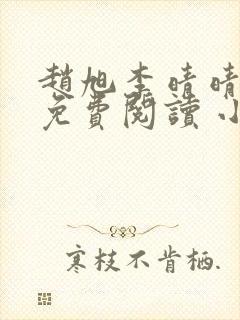 趙旭李晴晴
免費閱讀 小
寒枝不肯栖.